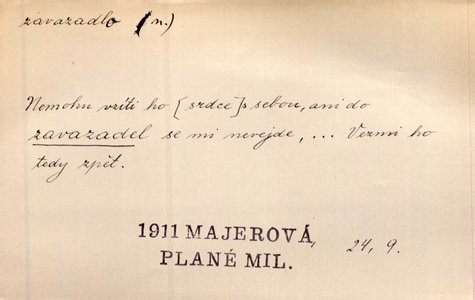 zavazadlo (n.)
Nemohu vzíti ho [srdce] s sebou, ani do
zavazadel se mi nevejde, ... Vezmi ho
tedy zpět.
1911 MAJEROVÁ,
PLANÉ MIL.
24, 9.